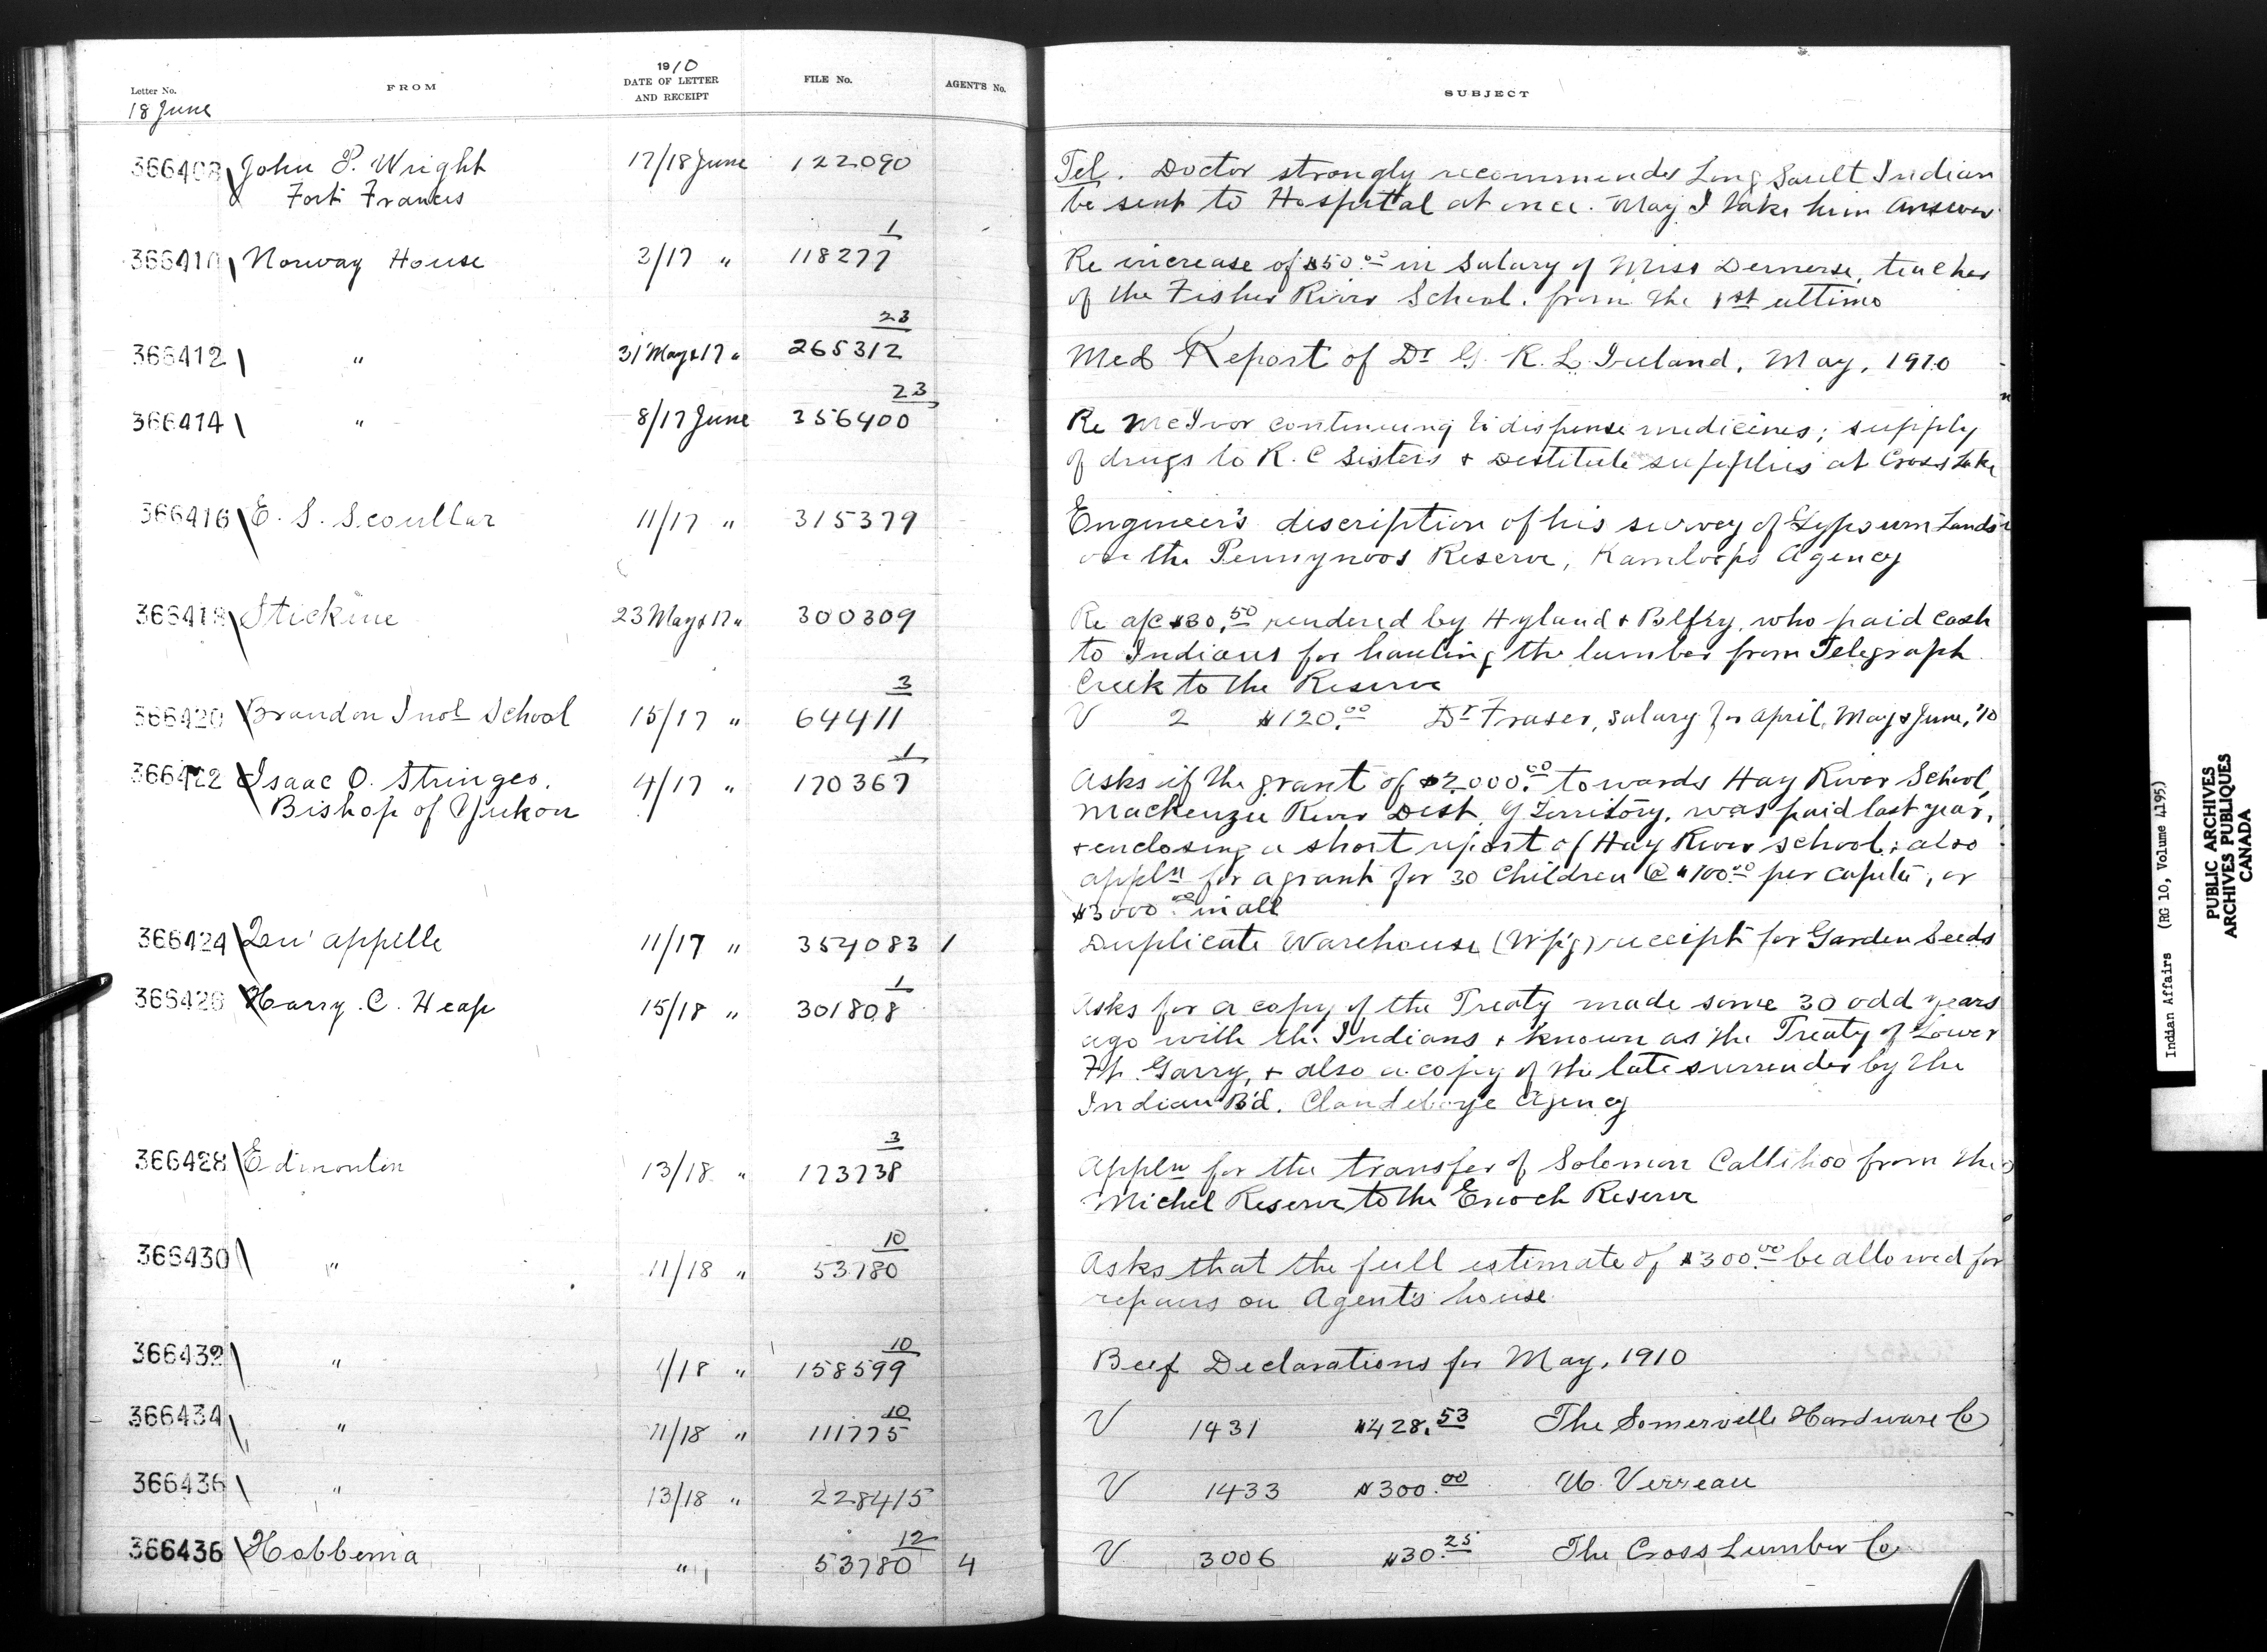 Letter No. FROM 1910 DATE OF LETTER AND RECEIPT FILE No. AGENT'S No. SUBJECT
18 June
366408 John P. Wright 17/18 June 122090 Tel. Doctor strongly recommends Long Sault Indian
Fort Frances be sent to Hospital at once. May I take him answer
366410 Norway House 3/17 " 118277 1 Re increase of $50.00 in salary of Miss Demerse, teacher
of the Fisher River School. from the 1st ultimo
366412 " 31 May & 17 " 265312 23 Med Report of Dr G. R. L. Ireland, May, 1910
366414 " 8/17 June 356400 23 Re McIvor continuing to dispense medicines; supply
of drugs to R. C Sisters & Destitute supplies at Cross Lake
366416 E. S. Scoullar 11/17 " 315379 Engineer's discription of his survey of Gypsum Lands
on the Pennynoos Reserve, Kamloops Agency
366418 Stickine 23 May & 17 " 300309 Re a/c $30.50 rendered by Hyland & Belfry, who paid cash
to Indians for hauling the lumber from Telegraph
Creek to the Reserve
366420 Brandon Indl School 15/17 " 64411 3 V 2 $120.00 Dr Fraser, salary for April, May & June, '10
366422 Isaac O. Stringer. 4/17 " 170367 1 Asks if the grant of $2000.00 towards Hay River School,
Bishop of Yukon Mackenzie River Dist, Y Territory, was paid last year,
& enclosing a short report of Hay River school; also
appln for a grant for 30 Children @ $100.00 per capita, or
$3000.00 in all
366424 Qu'appelle 11/17 " 354083 1 Duplicate Warehouse (Wpg) receipt for Garden Seeds
366426 Harry. C. Heap 15/18 " 301808 1 Asks for a copy of the Treaty made some 30 odd years
ago with the Indians & known as the Treaty of Lower
Ft. Garry, & also a copy of the late surrender by the
Indian B'd. Clandeboye Agency
366428 Edmonton 13/18 " 173738 3 Appln for the transfer of Solomon Callihoo from the
Michel Reserve to the Enoch Reserve
366430 " 11/18 " 53780 10 Asks that the full estimate of $300.00 be allowed for
repairs on Agent's house
366432 " /18 " 158599 10 Beef Declarations for May, 1910
366434 " 11/18 " 111775 10 V 1431 $428.53 The Somerville Hardware Co
366436 " 13/18 " 228415 V 1433 $300.00 Verreau
366436 Hobbema " 53780 12 4 V 3006 $30.25 The Cross Lumber Co
Indian Affairs (RG 10, Volume 4195)
PUBLIC ARCHIVES
ARCHIVES PUBLIQUES
CANADA